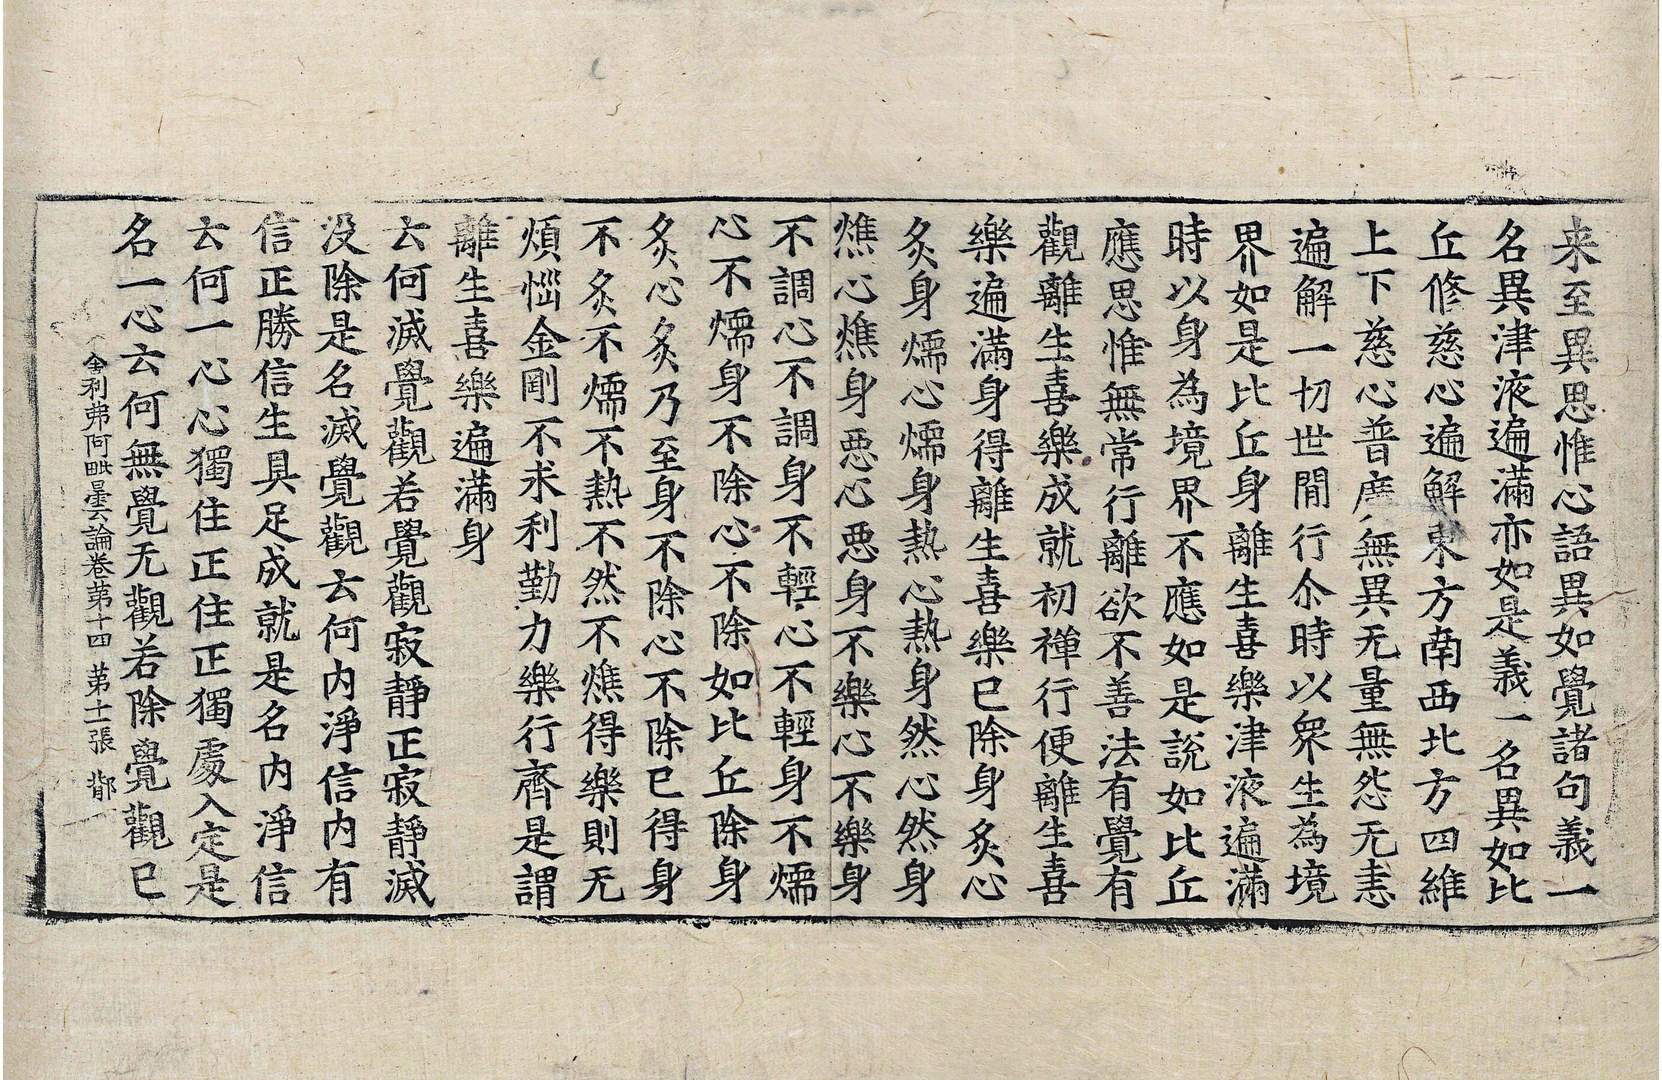 来至異思惟心語異如覺諸句義一
名異津液遍滿亦如是義一名異如比
丘修慈心遍解東方南西北方四維
上下慈心普廣無異无量無怨无恚
遍解一切世間行尒時以衆生為境
界如是比丘身離生喜樂津液遍滿
時以身為境界不應如是說如比丘
應思惟無常行離欲不善法有覺有
觀離生喜樂成就初禪行便離生喜
樂遍滿身得離生喜樂已除身炙心
炙身燸心燸身熱心熱身然心然身
燋心燋身惡心惡身不樂心不樂身
不調心不調身不輕心不輕身不燸
心不燸身不除心不除如比丘除身
炙心炙乃至身不除心不除已得身
不炙不燸不熱不然不燋得樂則无
煩惱金剛不求利勤力樂行齊是謂
離生喜樂遍滿身
云何滅覺觀若覺觀寂靜正寂靜滅
没除是名滅覺觀云何内淨信内有
信正勝信生具足成就是名内淨信
云何一心心獨住正住正獨處入定是
名一心云何無覺无觀若除覺觀已
舍利弗阿毗曇論卷第十四 第十一張 鄁